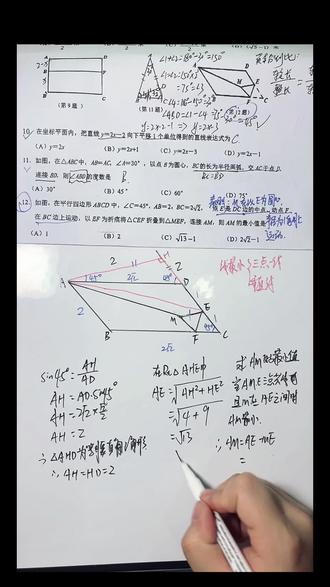 (第9题)
(第11题)
(第12题)
10. 在坐标平面内, 把直线y=2x-2向下平移1个单位得到的直线表达式为 C
(A) y=2x (B) y=2x+1 (C) y=2x-3 (D) y=2x-1
11. 如图, 在△ABC中, AB=AC, ∠A=30°, 以点B为圆心, BC的长为半径画弧, 交AC于点D,
连接BD, 则∠ABD的度数是 B.
BC=BD
(A) 30° (B) 45° (C) 60° (D) 75°
12. 如图, 在平行四边形ABCD中, ∠C=45°, AB=2, BC=2√2, 点E是DC边的中点, 动点F
在BC边上运动, 以EF为折痕将△CEF折叠到△MEF, 连接AM, 则AM的最小值是
(A) 1 (B) 2 (C) √13-1 (D) 2√2-1
H
2
2
A
45°
2√2
45°
D
1
E
M
2
B
F
45°
C
2√2
sin45°=AH/AD
AH=AD·sin45°
AH=2√2×√2/2
AH=2
∴△AHD为等腰直角三角形
∴AH=HD=2
在Rt△AHE中
AE=√AH²+HE²
=√4+9
=√13
求AM的最小值
当AME三点共线
且M在AE之间时
AM最小.
∴AM=AE-ME
=